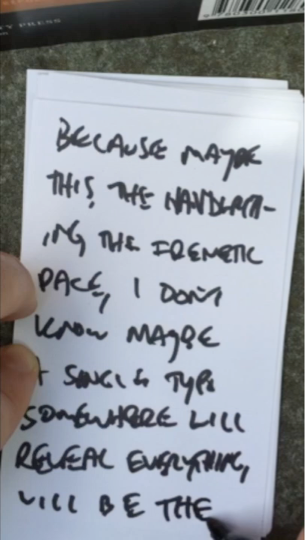 Y PRESS
BECAUSE MAYBE
THIS, THE HANDWRIT-
ING THE FRENETIC
PACE, I DON'T
KNOW MAYBE
A SINGLE TYPE
SOMEWHERE WILL
REVEAL EVERYTHING,
WILL BE THE